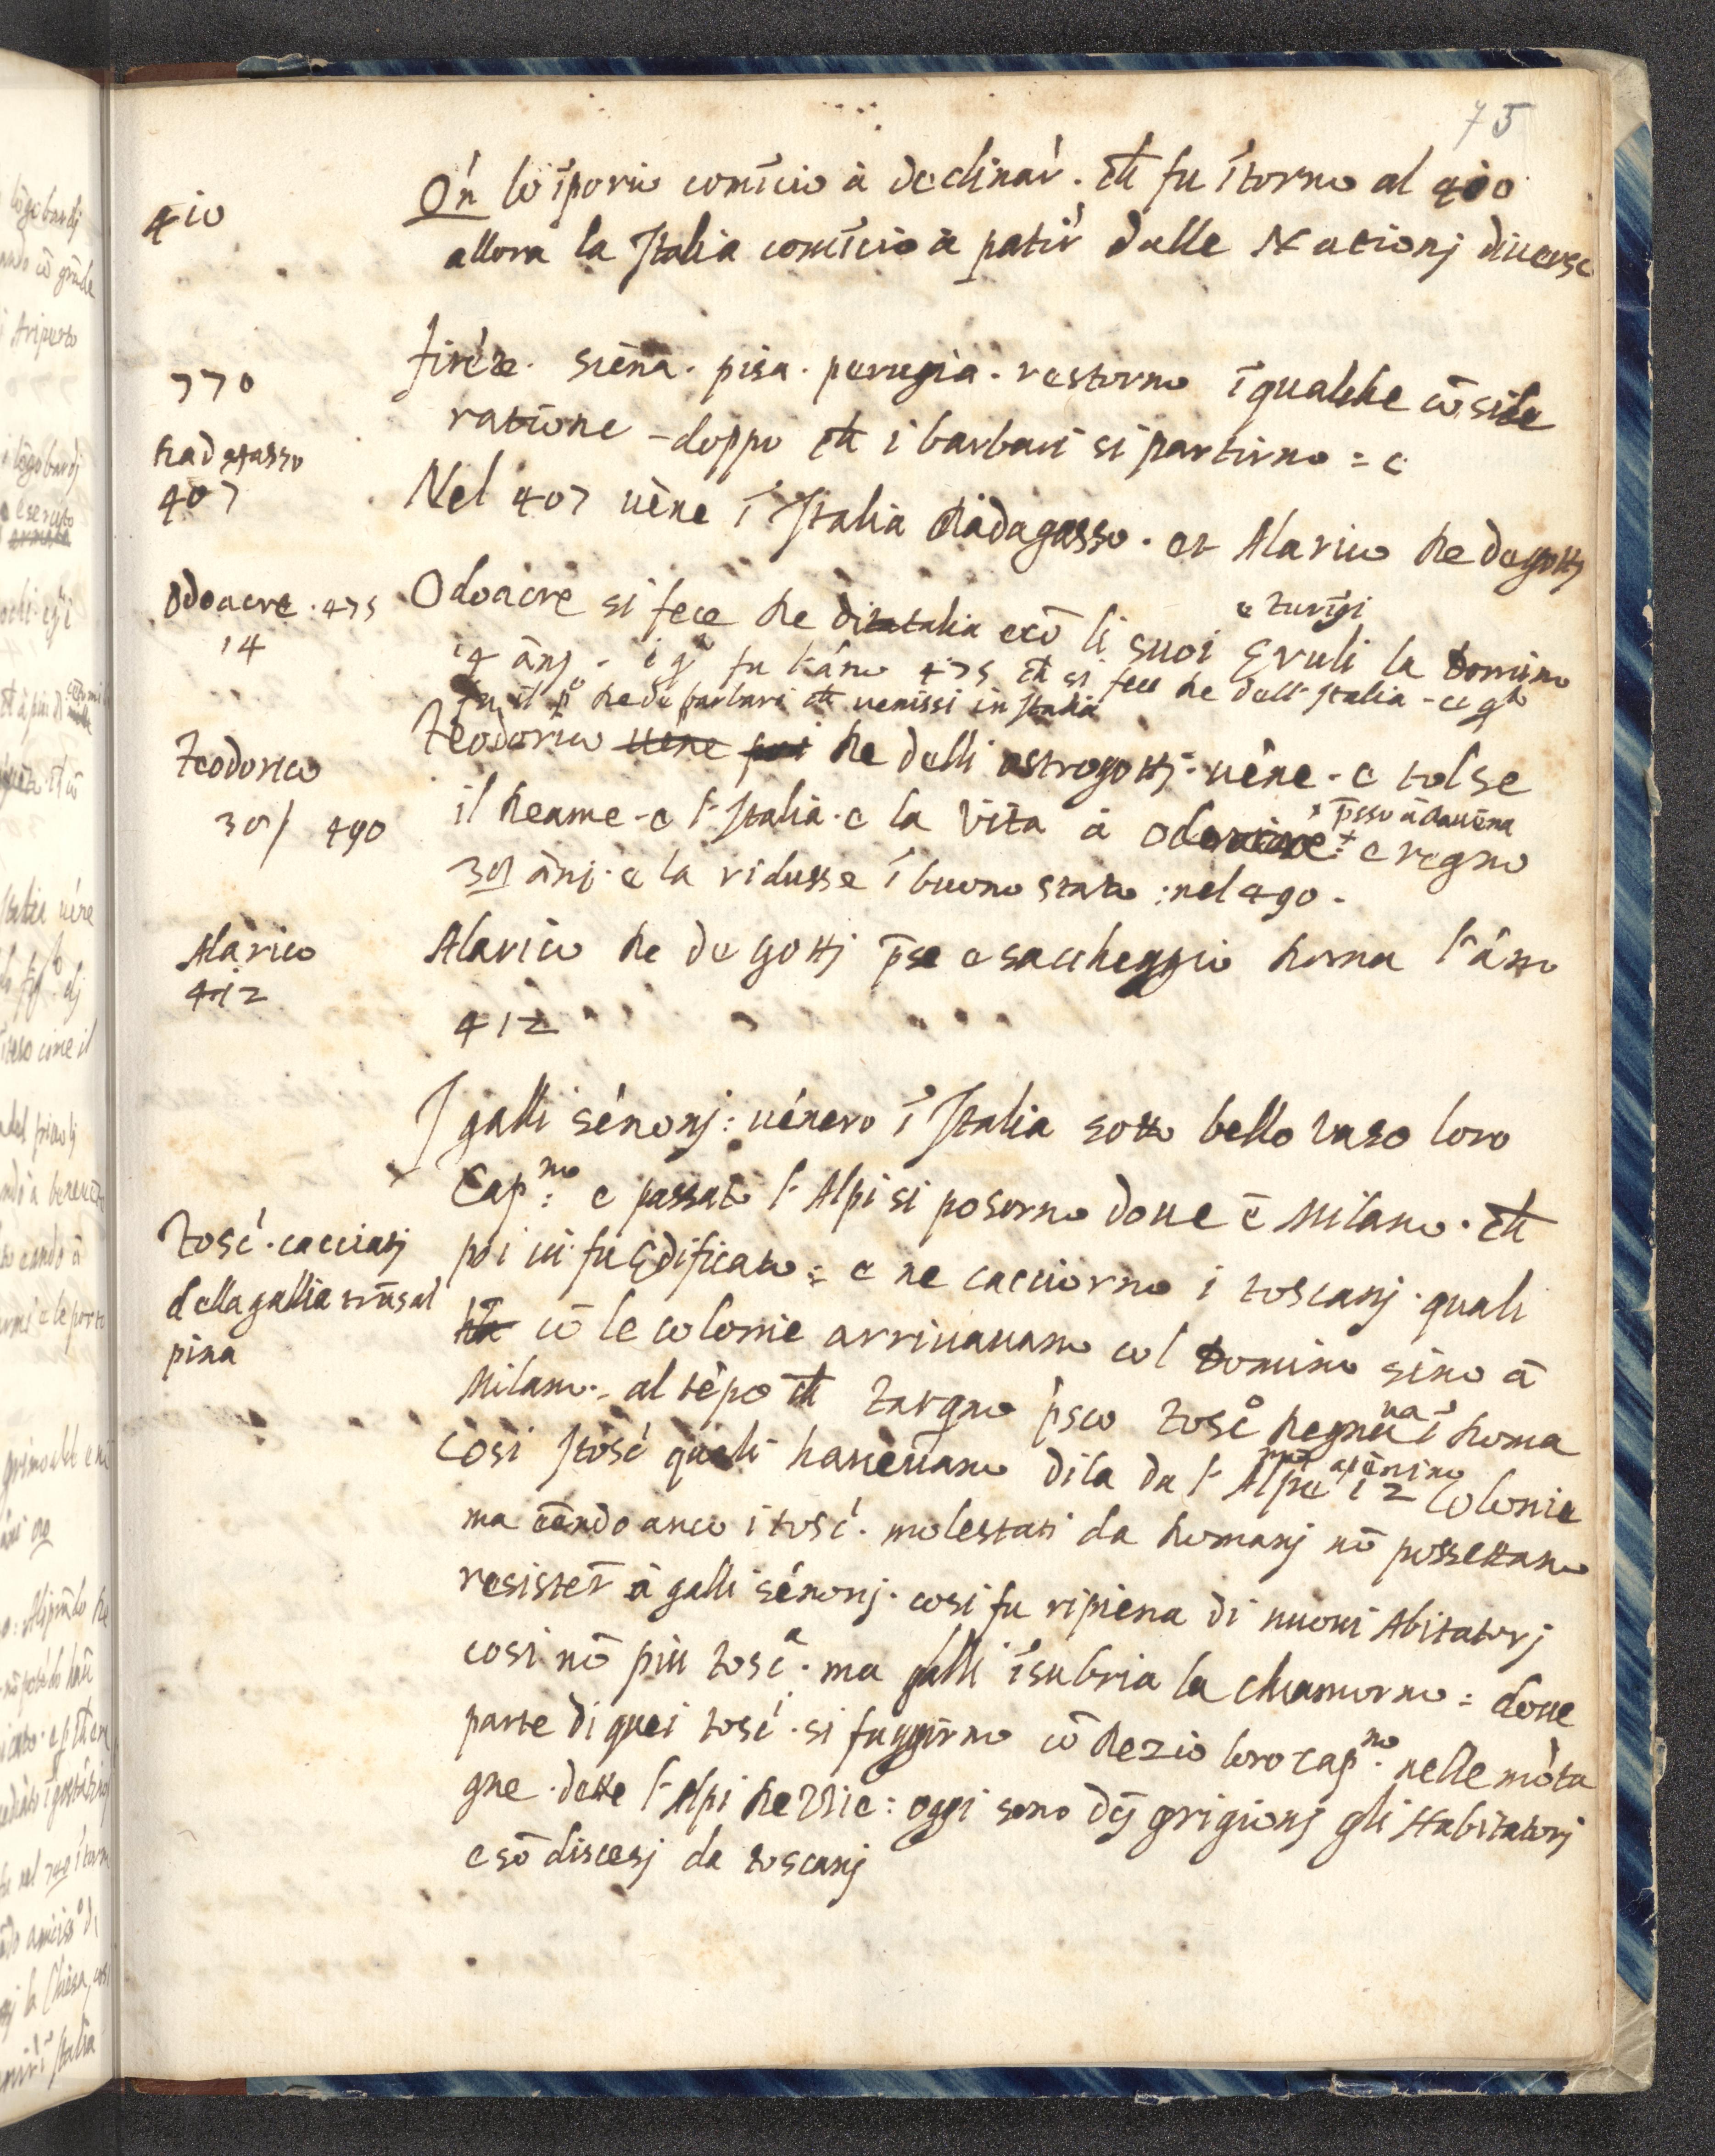 75
410
Qn̄ lo īperio comīcio à declinar̄. ch̄ fu ītorno al 410
allora la Italia comīcio à patir̄ dalle Nationj diuerse
770
firēze. siēna. pisa. perugia. restorno ī qualche cō side
ratione - doppo ch̄ i barbari si partirno = e
Radagasso
407
Nel 407 uēne ī Italia Radagasso. et Alarico Re de gottj
Odoacre. 475
14
e Turīgi
Odoacre si fece Re di italia e cō li suoi Eruli la domino
14 ānj. fu l'āno 475 ch̄ si fece Re dell' Italia
fu il pº Re de barbari ch̄ uenissi in Italia
Teodorico
30/ 490
Teodorico uēne poi Re delli ostrogottj. uēne. e tolse
p̄sso à Rauēna
il Reame. e l'Italia. e la vita à e regno
ānj. e la ridusse ī buono stato: nel 490.
Alarico
412
Alarico Re de gottj p̄se e saccheggio Roma l'āno
412
I galli sēnonj: uēnero ī Italia sotto bello vaso loro
Capno: e passato l'Alpi si posorno doue ē Milano. ch̄
Tosc̄. cacciatj
della gallia trāsal
pina
poi ui fu Edificato: e ne cacciorno i toscanj. quali
cō le colonie arriuauano col domino sino à
Milano. al tēpo ch̄ Tarqno p̄sco Toscº Regnaua ī Roma
apēnino
cosi I tosc̄ quali haueuano di la da l'Alpe 12 Colonie
ma eēndo anco i tosc̄. molestati da Romanj nō possettano
resister̄ à galli sēnonj. cosi fu ripiena di nuoui Abitatorj
cosi nō piu toscª. ma galli īsubria la chiamorno: doue
parte di quei tosci. si fuggirno cō Rezio loro capno. nelle mōta
gne. dette l'Alpi Rezzie: oggi sono dej grigionj gli Habitatorj
e sō discesj da toscanj